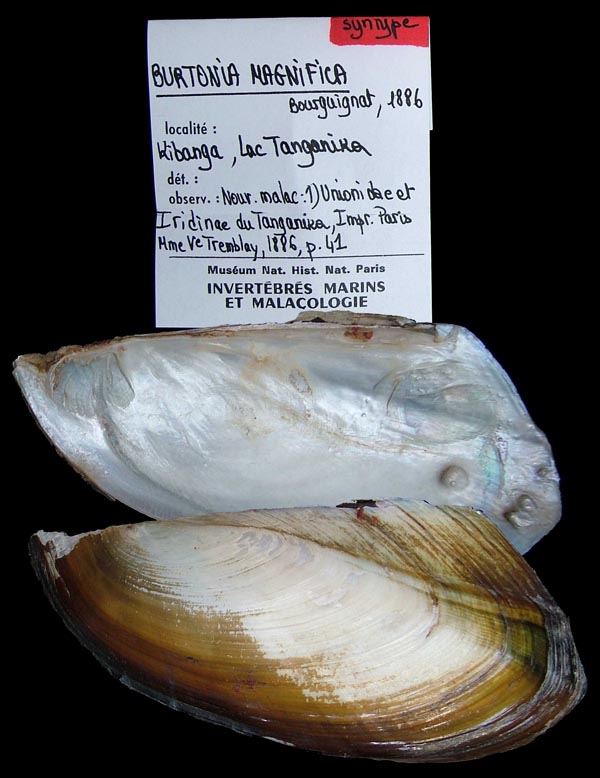 syntype
BURTONIA MAGNIFICA
Bourguignat, 1886
localité :
Kibanga, Lac Tanganika
dét. :
observ. : Nouv. malac : 1) Unionidae et
Iridinae du Tanganika, Impr. Paris
Mme Ve Tremblay, 1886, p. 41
Muséum Nat. Hist. Nat. Paris
INVERTÉBRÉS MARINS
ET MALAÇOLOGIE